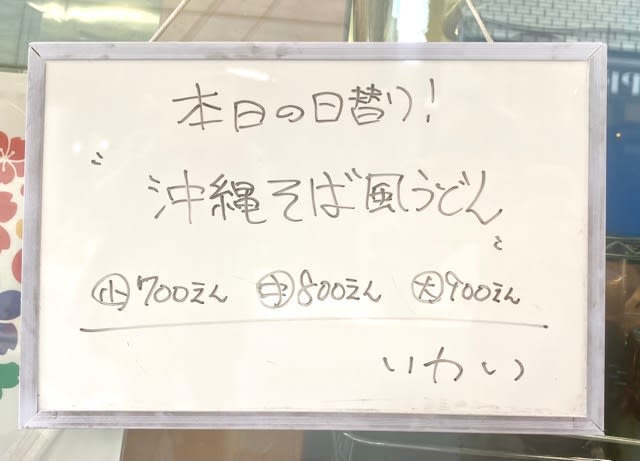 本日の日替り!
〝沖縄そば風うどん〟
㊤700えん ㊥800えん ㊛900えん
いわい